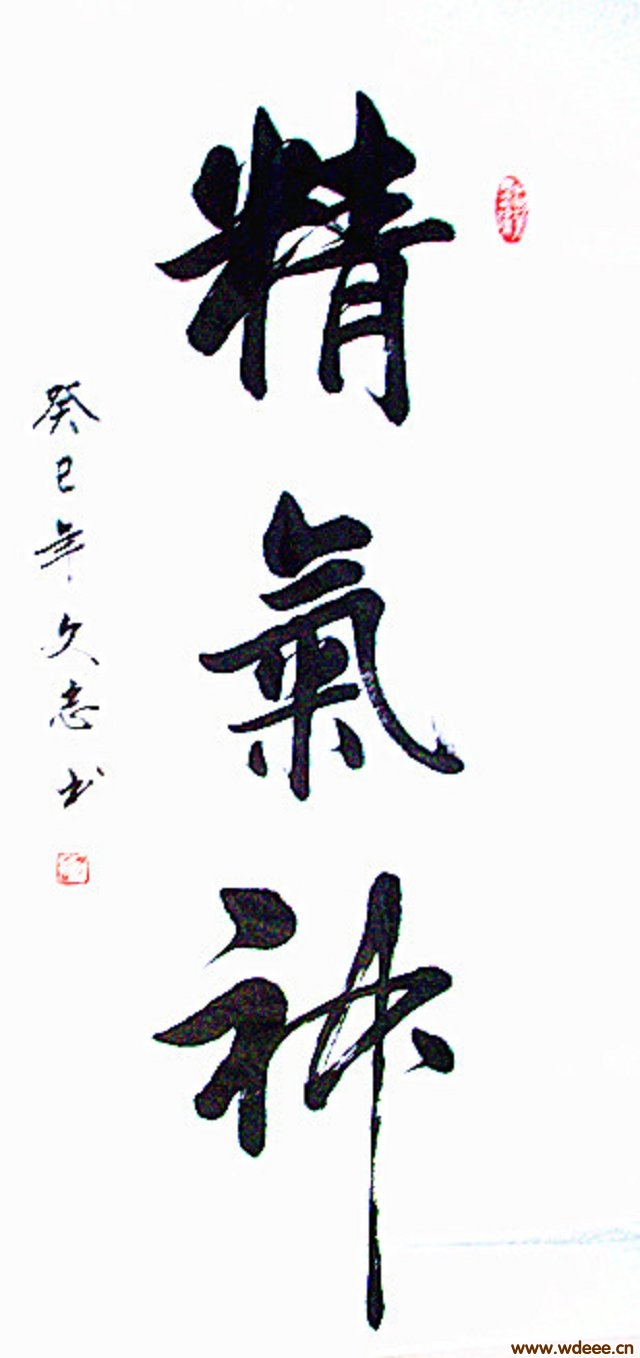 精氣神
癸巳年文志书
www.wdeee.cn